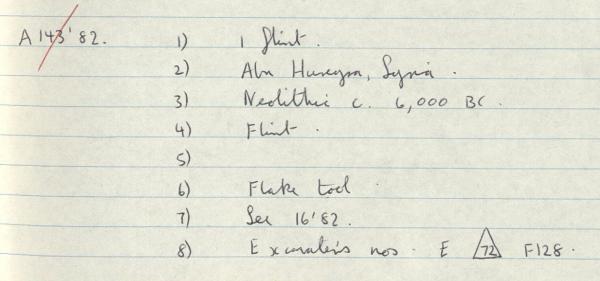 A 143'82. 1) 1 flint.
2) Abu Hureyra, Syria.
3) Neolithic c. 6,000 BC.
4) Flint.
5)
6) Flake tool.
7) See 16'82.
8) Excavator's nos. E 72 F128.